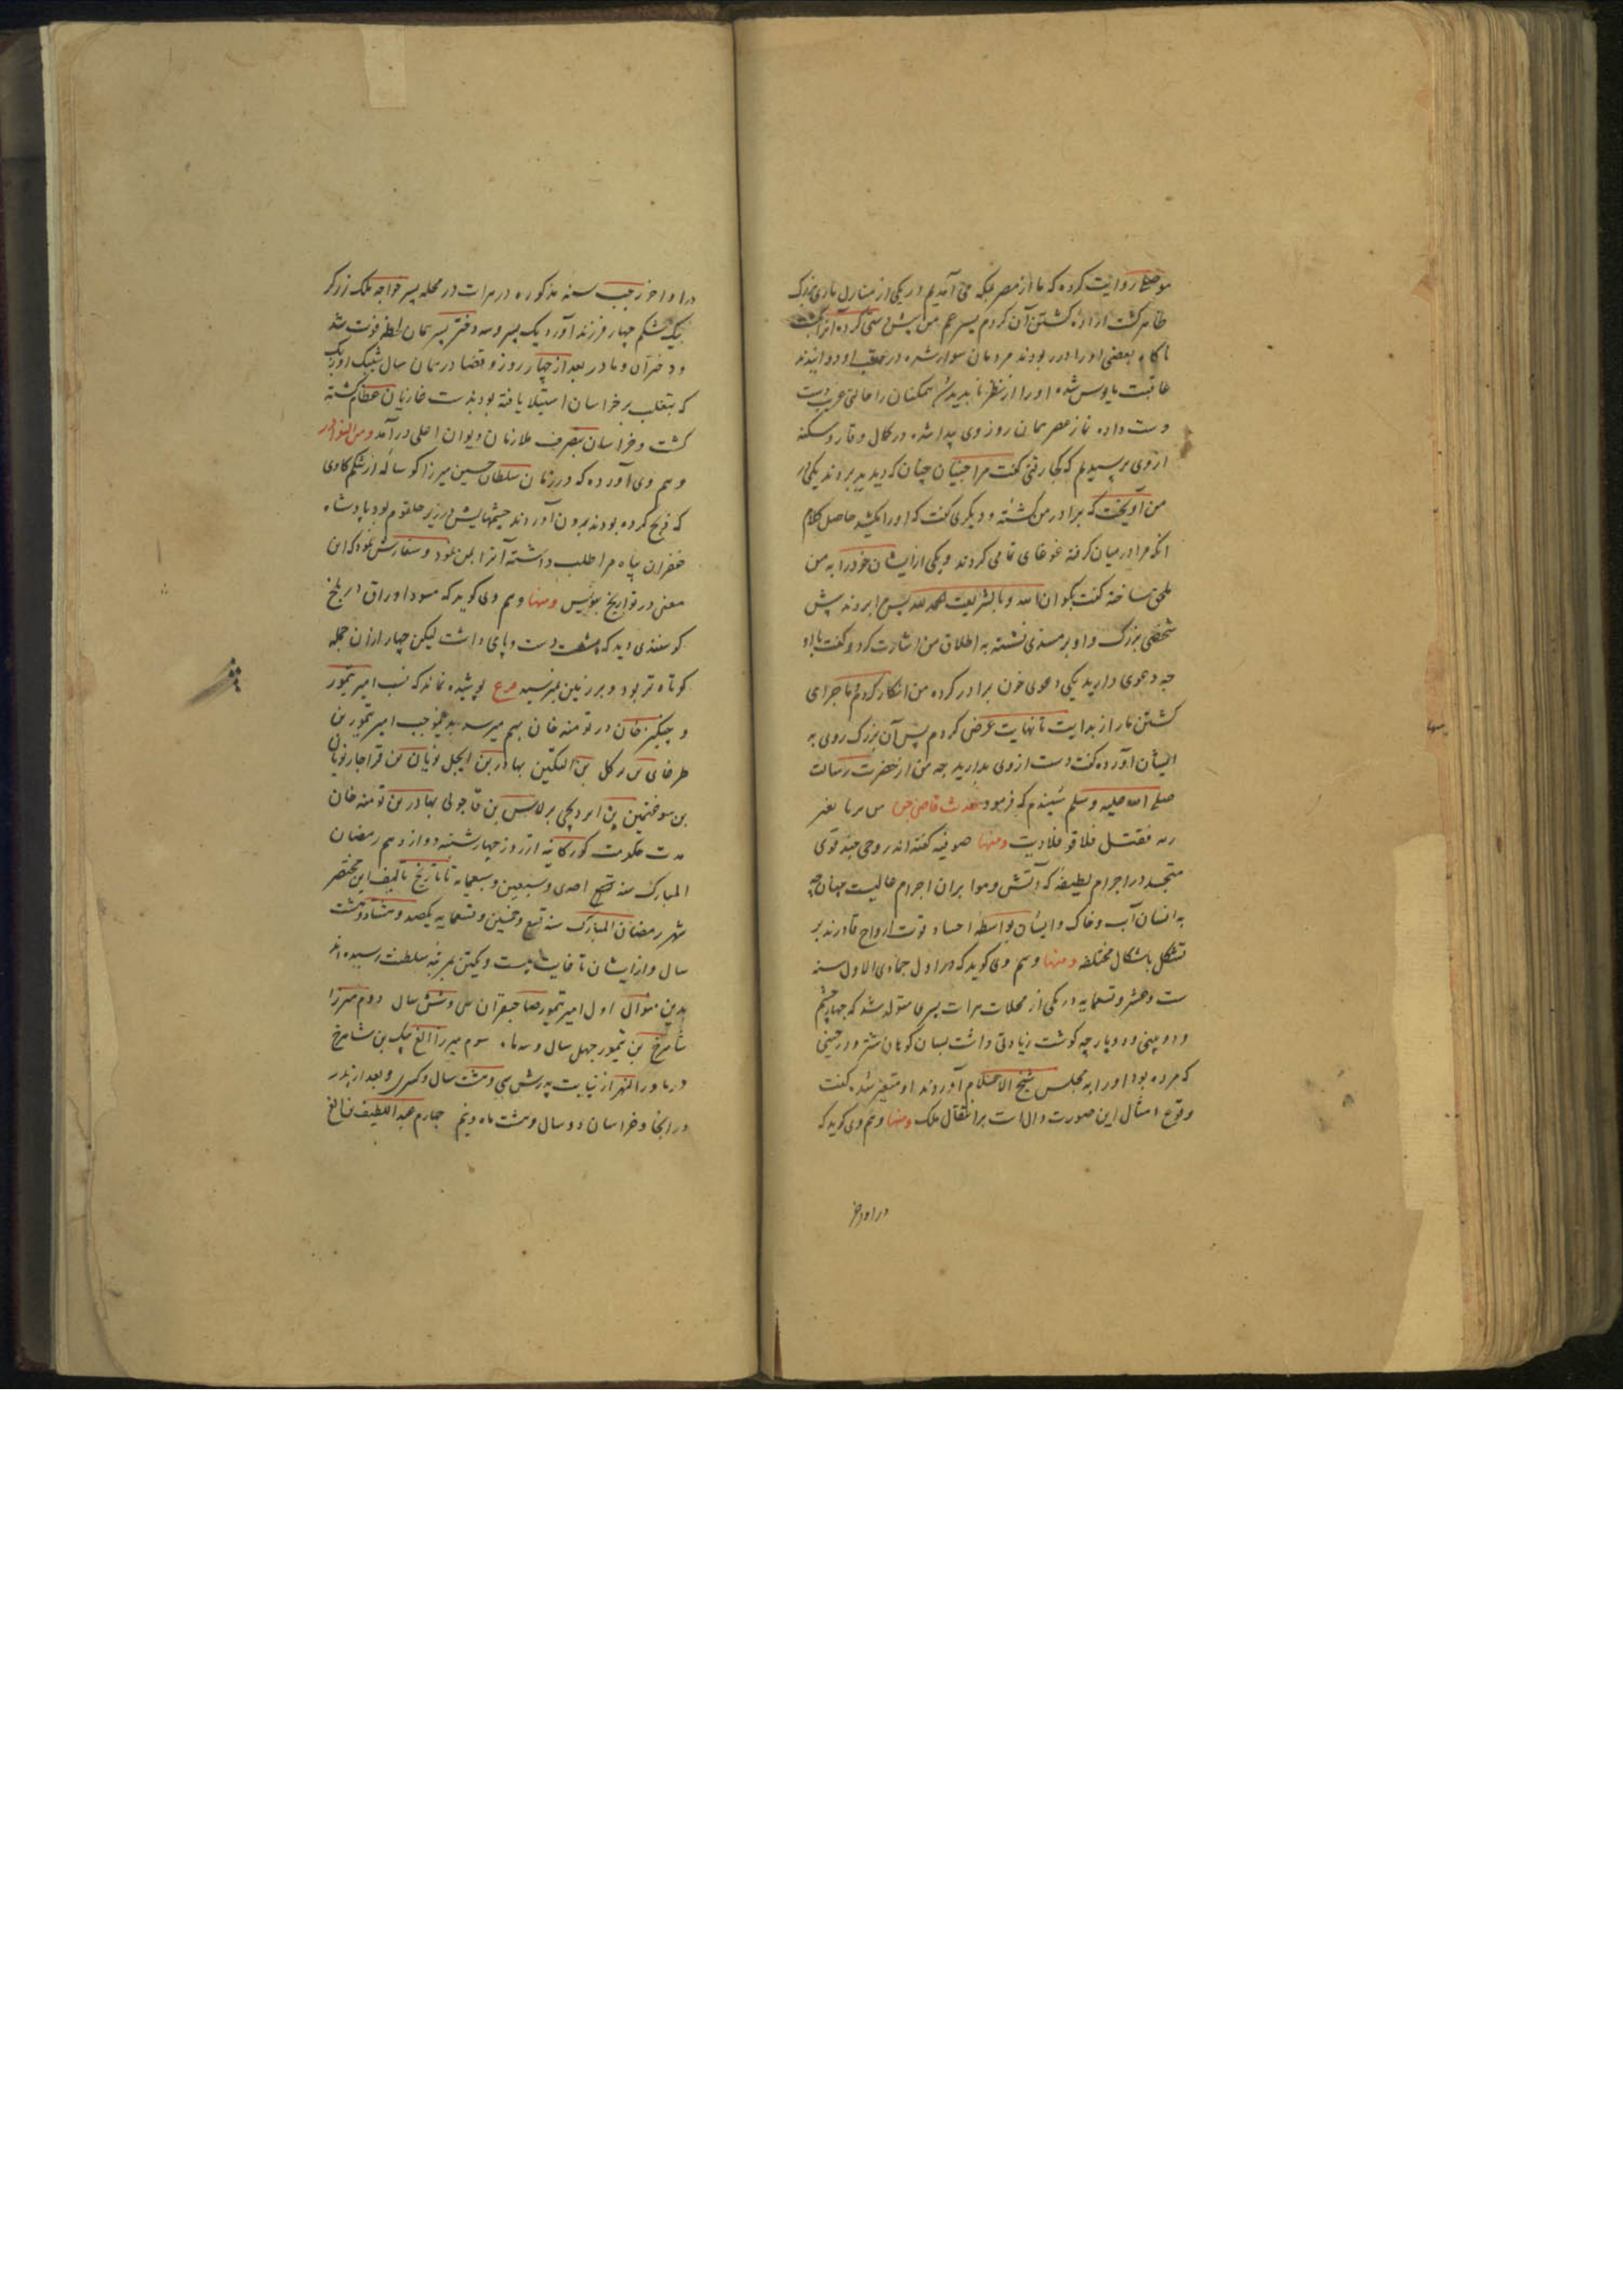 موصلی روایت کرده که ما از مصر بمکه می آمدیم در یکی از منازل ماری بزرگ
ظاهر گشت اراده کشتن آن کردم پسر عم من پیش دستی کرده آنرا بکشت
ناگاه بعضی او را در ربودند مردمان سوار شده در عقب او دوانیدند
عاقبت مایوس شده او را از نظر ناپدید شد همکنان را حالتی عریب دست
دست داده نماز عصر همان روز وی پیدا شده در کمال وقار و سکینه
از وی پرسیدیم که کجا رفتی گفت مرا جنیان چنان که دیدید بردند یکی در
من آویخت که برادر من کشته و دیگری گفت که او را بکشید حاصل کلام
انکه مرا در میان گرفته غوغای تمامی کردند و یکی از ایشان خود را به من
ملحق ساخته گفت بگو ان الله وبالشریعت محمد لله پس مرا بردند پیش
شخصی بزرگ و او بر مسندی نشسته به اطلاق من اشارت کرد و گفت با او
چه دعوی دارید یکی دعوی خون برادر کرده من انکار کردم ماجرای
کشتن مار از بدایت تا نهایت عرض کردم پس آن بزرگ روی به
ایشان آورده گفت دست از وی بدارید چه من از حضرت رسالت
صلی الله علیه وسلم شنیدم که فرمود من بریا بغیر
زیه فقتل فلا قود فلا دیت ومنها صوفیه گفته اند روحی چند قوی
متجسد در اجرام لطیفه که آتش و هوا بران اجرام غالبست چنانچه
به انسان آب و خاک و ایشان بواسطه اجساد قوت ارواح قادرند بر
تشکل باشکال مختلفه ومنها و هم وی گوید که در اول جمادی الاول سنه
ست و عشر و تسعمایه در یکی از محلات هرات پسری متولد شد که چهار چشم
و دو بینی و دو پارچه گوشت زیادتی داشت بسان کوهان شتر و در حینی
که مرده بود او را به مجلس شیخ الاسلام آوردند او متغیر شده گفت
وقوع امثال این صورت دال است بر انتقال ملک ومنها و هم وی گوید که
در اواخر
منها
در اواخر رجب سنه مذکوره در هرات در محله پسر خواجه ملک زرگر
بیک شکم چهار فرزند آورد یک پسر و سه دختر پسر همان لحظه فوت شد
و دختران و مادر بعد از چهار روز و قضا در همان سال شیبک اوزبک
که بتغلب بر خراسان استیلا یافته بود بدست غازیان عظام کشته
گشت و خراسان بتصرف ملازمان دیوان اعلی در آمد ومن النوادر
و هم وی آورده که در زمان سلطان حسین میرزا گوساله از شکم گاوی
که ذبح کرده بودند برون آوردند چشمهایش در زیر حلقوم بود پادشاه
غفران پناه مرا طلب داشته آنرا بمن نمود و سفارش نمود که این
معنی در تواریخ بنویس ومنها و هم وی گوید که مسود اوراق در بلخ
گوسفندی دید که هشت دست و پای داشت لیکن چهار از آن جمله
کوتاه تر بود و بر زمین نمیرسید فرع پوشیده نماند که نسب امیر تیمور
و چنگیز خان در تومنه خان بهم میرسد بدینموجب امیر تیمور بن
طرغای بن برکل بن النکین بهادر بن ایجل نویان بن قراجار نویان
بن سوغنجین بن ایرومچی برلاس بن قاجولی بهادر بن تومنه خان
مدت حکومت کورکانیه از روز چهارشنبه دوازدهم رمضان
المبارک سنه احدی و سبعین و سبعمایه تا تاریخ تالیف این مختصر
شهر رمضان المبارک سنه تسع و خمسین و تسعمایه یکصد و هشتاد و هشت
سال و از ایشان تا غایت بیست و یکتن بمرتبه سلطنت رسیده اند
بدین منوال اول امیر تیمور صاحبقران سی و شش سال دوم میرزا
شاهرخ بن تیمور چهل سال و سه ماه سوم میرزا الغ بیک بن شاهرخ
در ماوراالنهر از نیابت پدرش سی و هشت سال و کسری و بعد از پدر
در انجا و خراسان دو سال و هشت ماه و نیم چهارم عبداللطیف بن الغ